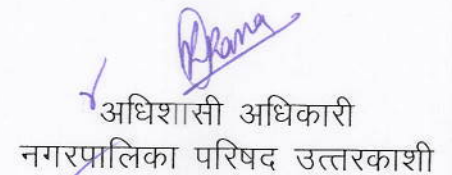 अधिशासी अधिकारी
नगरपालिका परिषद उत्तरकाशी